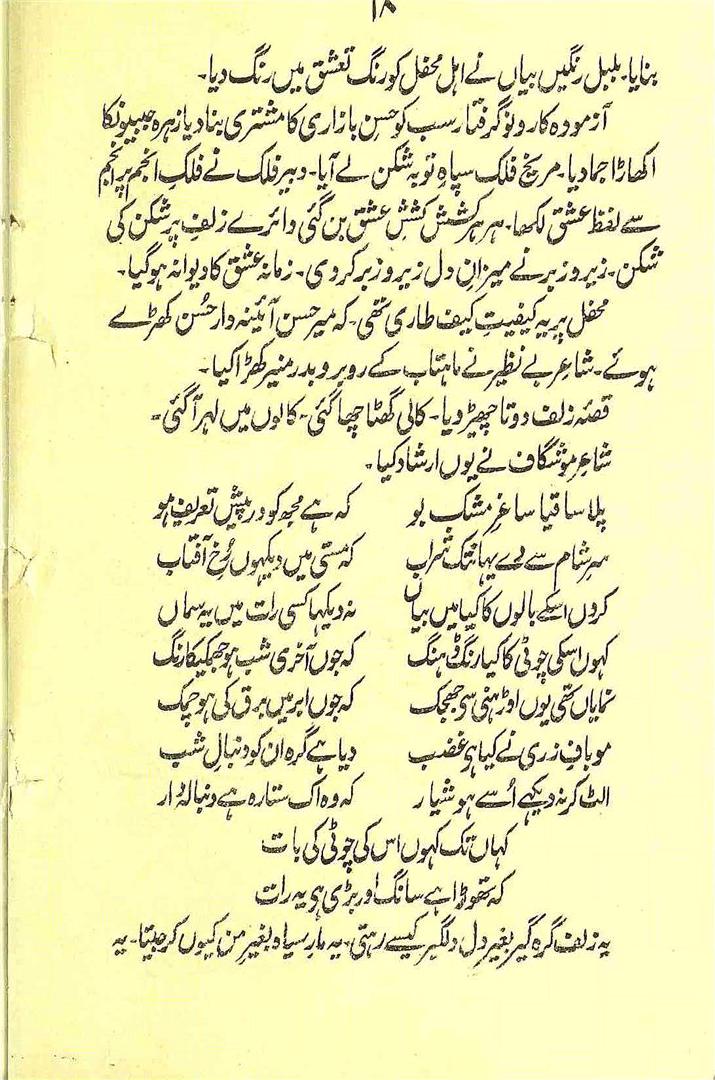 ۱۸
بنایا۔ بلبل رنگیں بیاں نے اہل محفل کو رنگ تعشق میں رنگ دیا۔
آزمودہ کار و نو گرفتار سب کو حسن بازاری کا مشتری بنا دیا زہرہ جبیونکا
اکھاڑا جما دیا۔ مریخ فلک سپاہِ توبہ شکن لے آیا۔ دبیر فلک نے فلکِ انجم پر انجم
سے لفظ عشق لکھا۔ ہر ہر کشش کششِ عشق بن گئی دائرے زلفِ پر شکن کی
شکن۔ زیر و زبر نے میزانِ دل زیر و زبر کر دی۔ زمانہ عشق کا دیوانہ ہو گیا۔
محفل پر یہ کیفیتِ کیف طاری تھی۔ کہ میر حسن آئینہ دار حُسن کھڑے
ہوئے۔ شاعر بے نظیر نے ماہتاب کے روبرو بدر منیر کھڑا کیا۔
قصّہ زلف دوتا چھیڑ دیا۔ کالی گھٹا چھا گئی۔ کالوں میں لہر آ گئی۔
شاعر موشگاف نے یوں ارشاد کیا۔
پلا ساقیا ساغرِ مشک بو کہ ہے مجھ کو درپیش تعریفِ مو
سرِ شام سے دے یہانتک شراب کہ مستی میں دیکھوں رُخِ آفتاب
کروں اسکے بالوں کا کیا میں بیاں نہ دیکھا کسی رات میں یہ سماں
کہوں اسکی چوٹی کا کیا رنگ ڈھنگ کہ جوں آخری شب ہو جھمکیکا رنگ
نمایاں تھی یوں اوڑھنی سی جھجک کہ جوں ابر میں برق کی ہو چمک
موبافِ زری نے کیا ہی غضب دیا ہے گرہ ان کو دنبالِ شب
الٹ کر نہ دیکھے اُسے ہوشیار کہ وہ اک ستارہ ہے دنبالہ دار
کہاں تک کہوں اس کی چوٹی کی بات
کہ تھوڑا ہے سانگ اور بڑی ہی یہ رات
یہ زلف گرہ گیر بغیر دل دلگیر کیسے رہتی۔ یہ مار سیاہ بغیر من کیوں کر جیتا۔ یہ